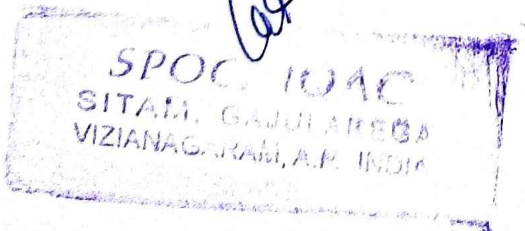 SPOC, IQAC
SITAM, GAJULAREGA
VIZIANAGARAM, A.P. INDIA